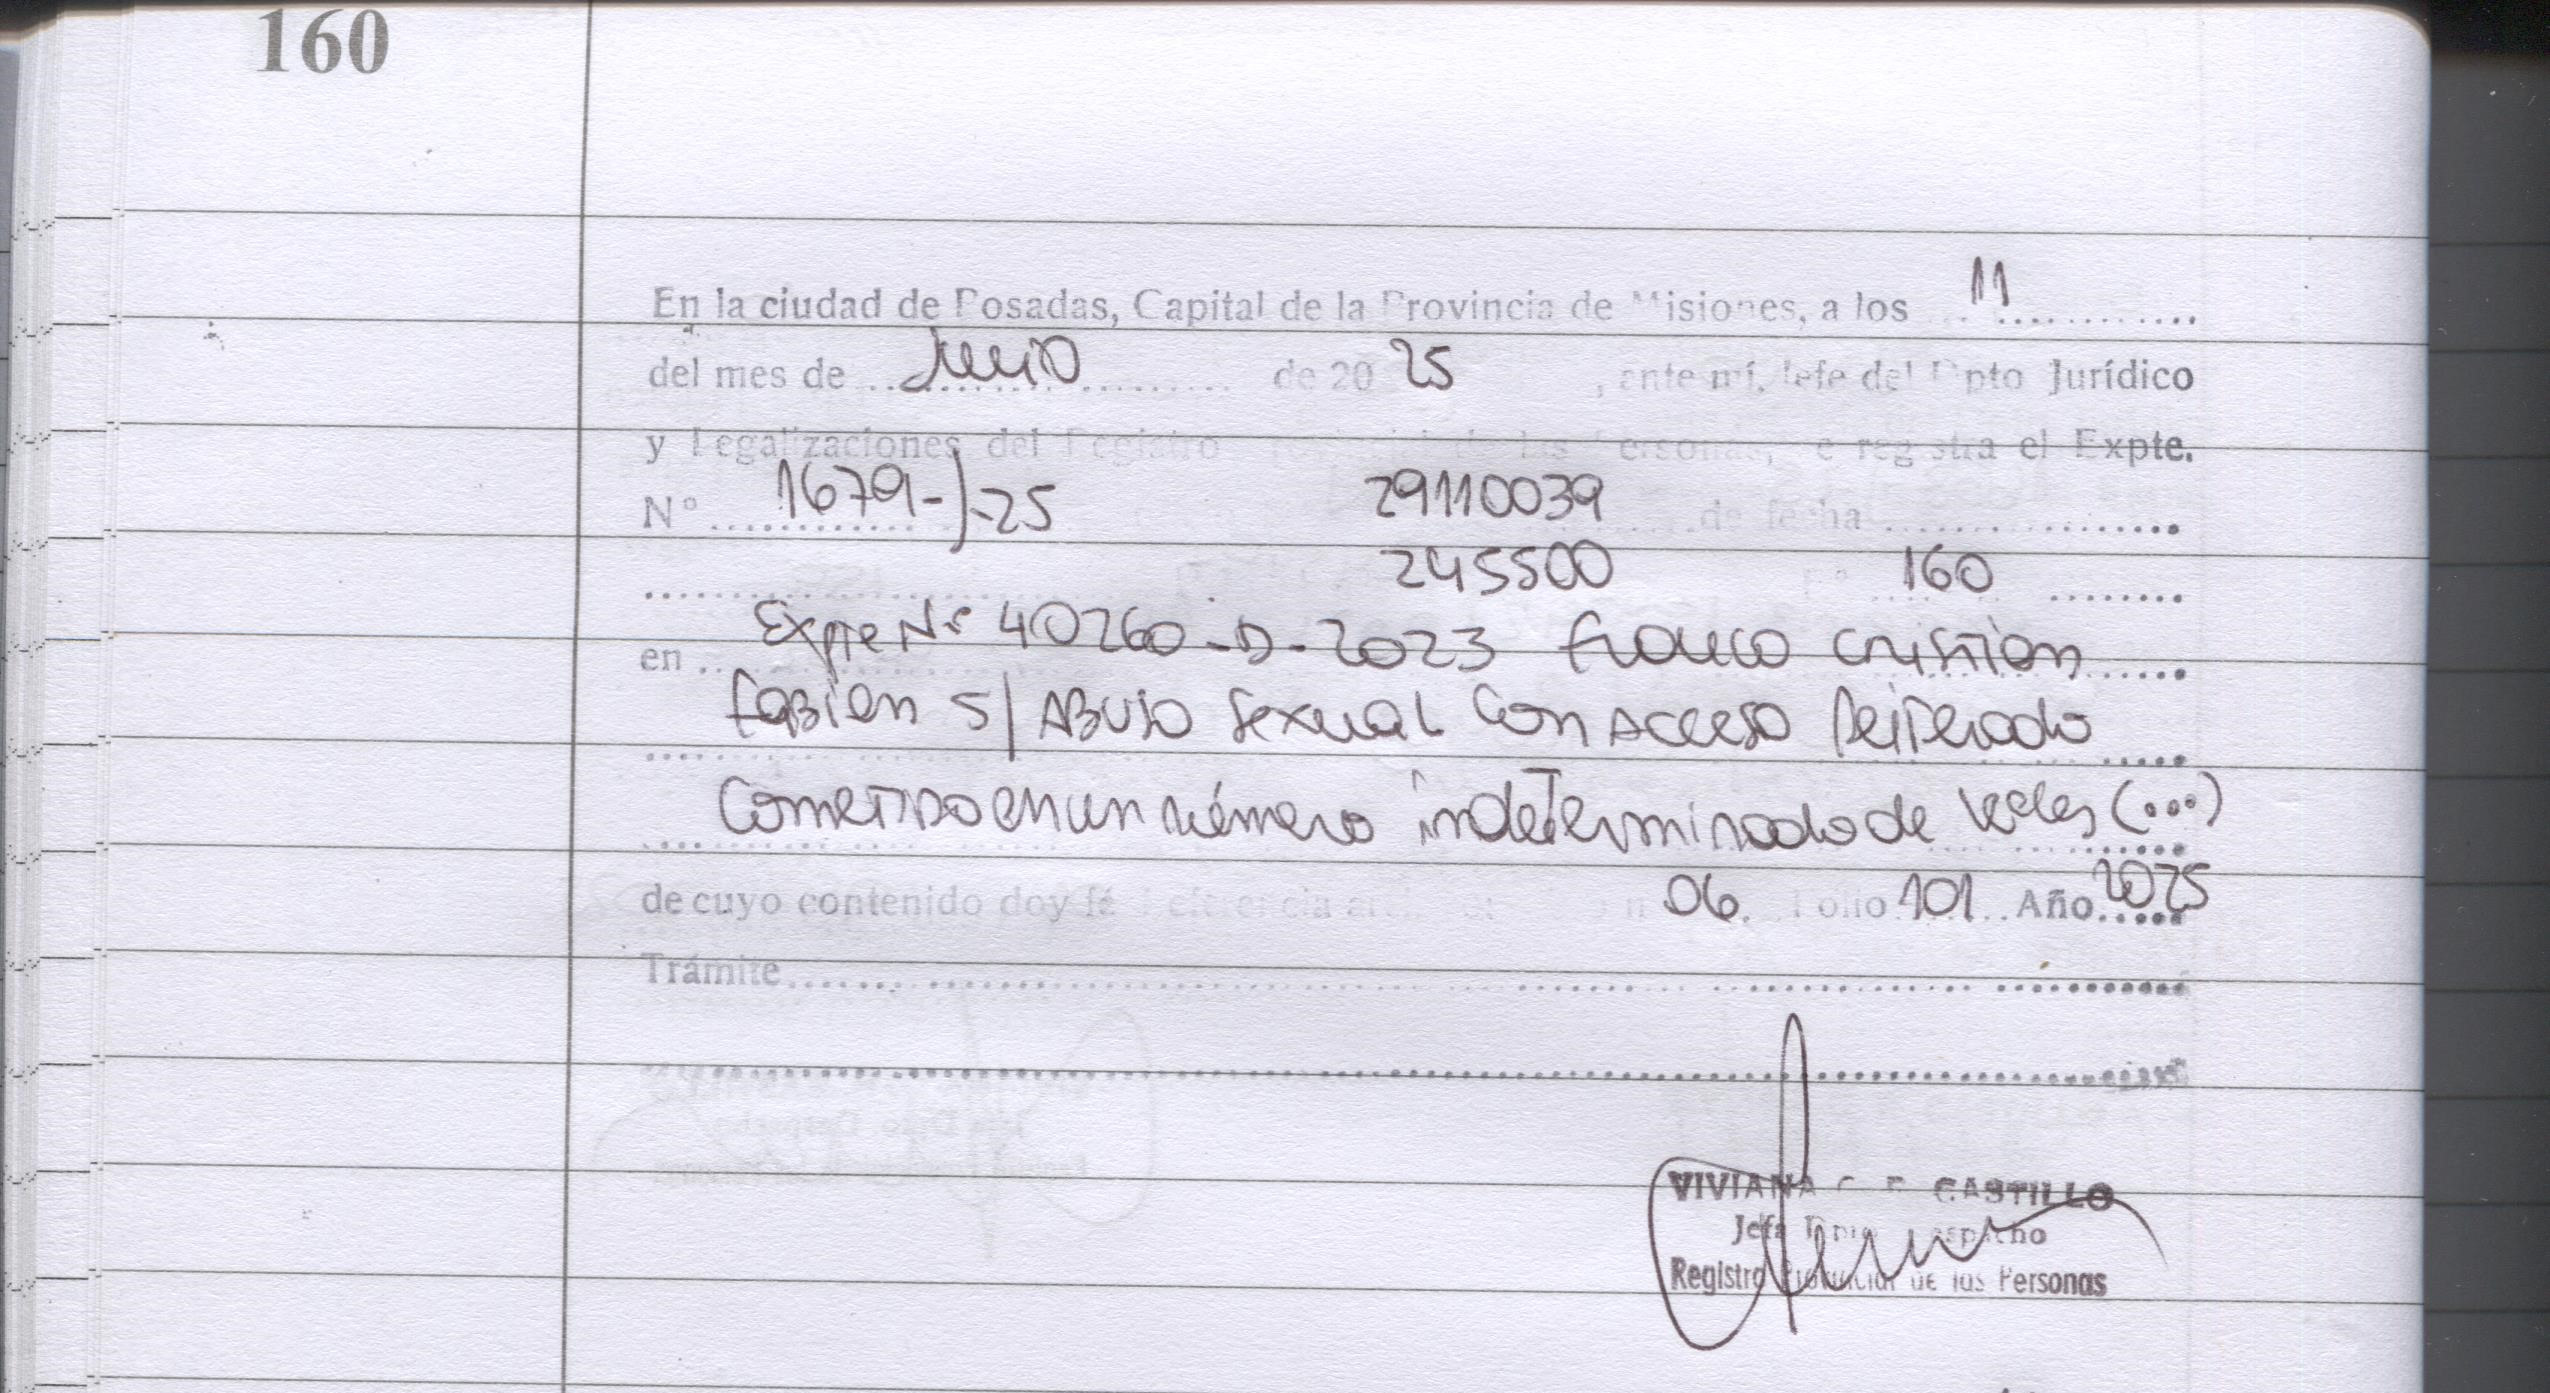 160
En la ciudad de Posadas, Capital de la Provincia de Misiones, a los 11
del mes de Junio de 20 25, ante mí, Jefe del Dpto Jurídico
y Legalizaciones del Registro Provincial de las Personas, se registra el Expte.
N° 1679-J-25 29110039 de fecha
245500 160
en Expte N° 40260-D-2023 Franco Cristian
Fabian S/ ABUSO Sexual Con Acceso Reiterado
Cometido en un número indeterminado de veces (...)
de cuyo contenido doy fé 06. Folio 101 Año 2025
Trámite
VIVIANA CASTILLO
Jefa Dpto Despacho
Registro Provincial de las Personas